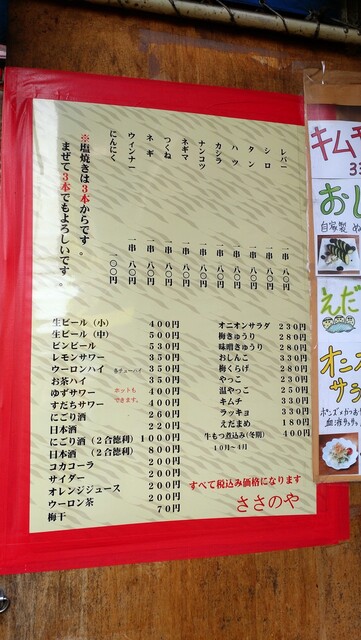 レバー 一串 八〇円
シロ 一串 八〇円
タン 一串 八〇円
ハツ 一串 八〇円
カシラ 一串 八〇円
ナンコツ 一串 八〇円
ネギマ 一串 八〇円
つくね 一串 八〇円
ネギ 一串 八〇円
ウィンナー 一串 八〇円
にんにく 一串 一〇〇円
※塩焼きは3本からです。
まぜて3本でもよろしいです。
生ビール（小） 400円
生ビール（中） 500円
ビンビール 530円
レモンサワー 350円
ウーロンハイ 350円
お茶ハイ 350円
ゆずサワー 400円
すだちサワー 400円
ホットも
できます。
にごり酒 200円
日本酒 220円
にごり酒（2合徳利） 1000円
日本酒（2合徳利） 800円
コカコーラ 200円
サイダー 200円
オレンジジュース 200円
ウーロン茶 200円
梅干 70円
オニオンサラダ 230円
梅きゅうり 280円
味噌きゅうり 280円
おしんこ 330円
梅くらげ 280円
やっこ 230円
温やっこ 250円
キムチ 330円
ラッキョ 330円
えだまめ 180円
牛もつ煮込み(冬期) 400円
10月〜4月
すべて税込み価格になります
ささのや
キムチ
33
おし
自家製
えだ
オニオン
サラ